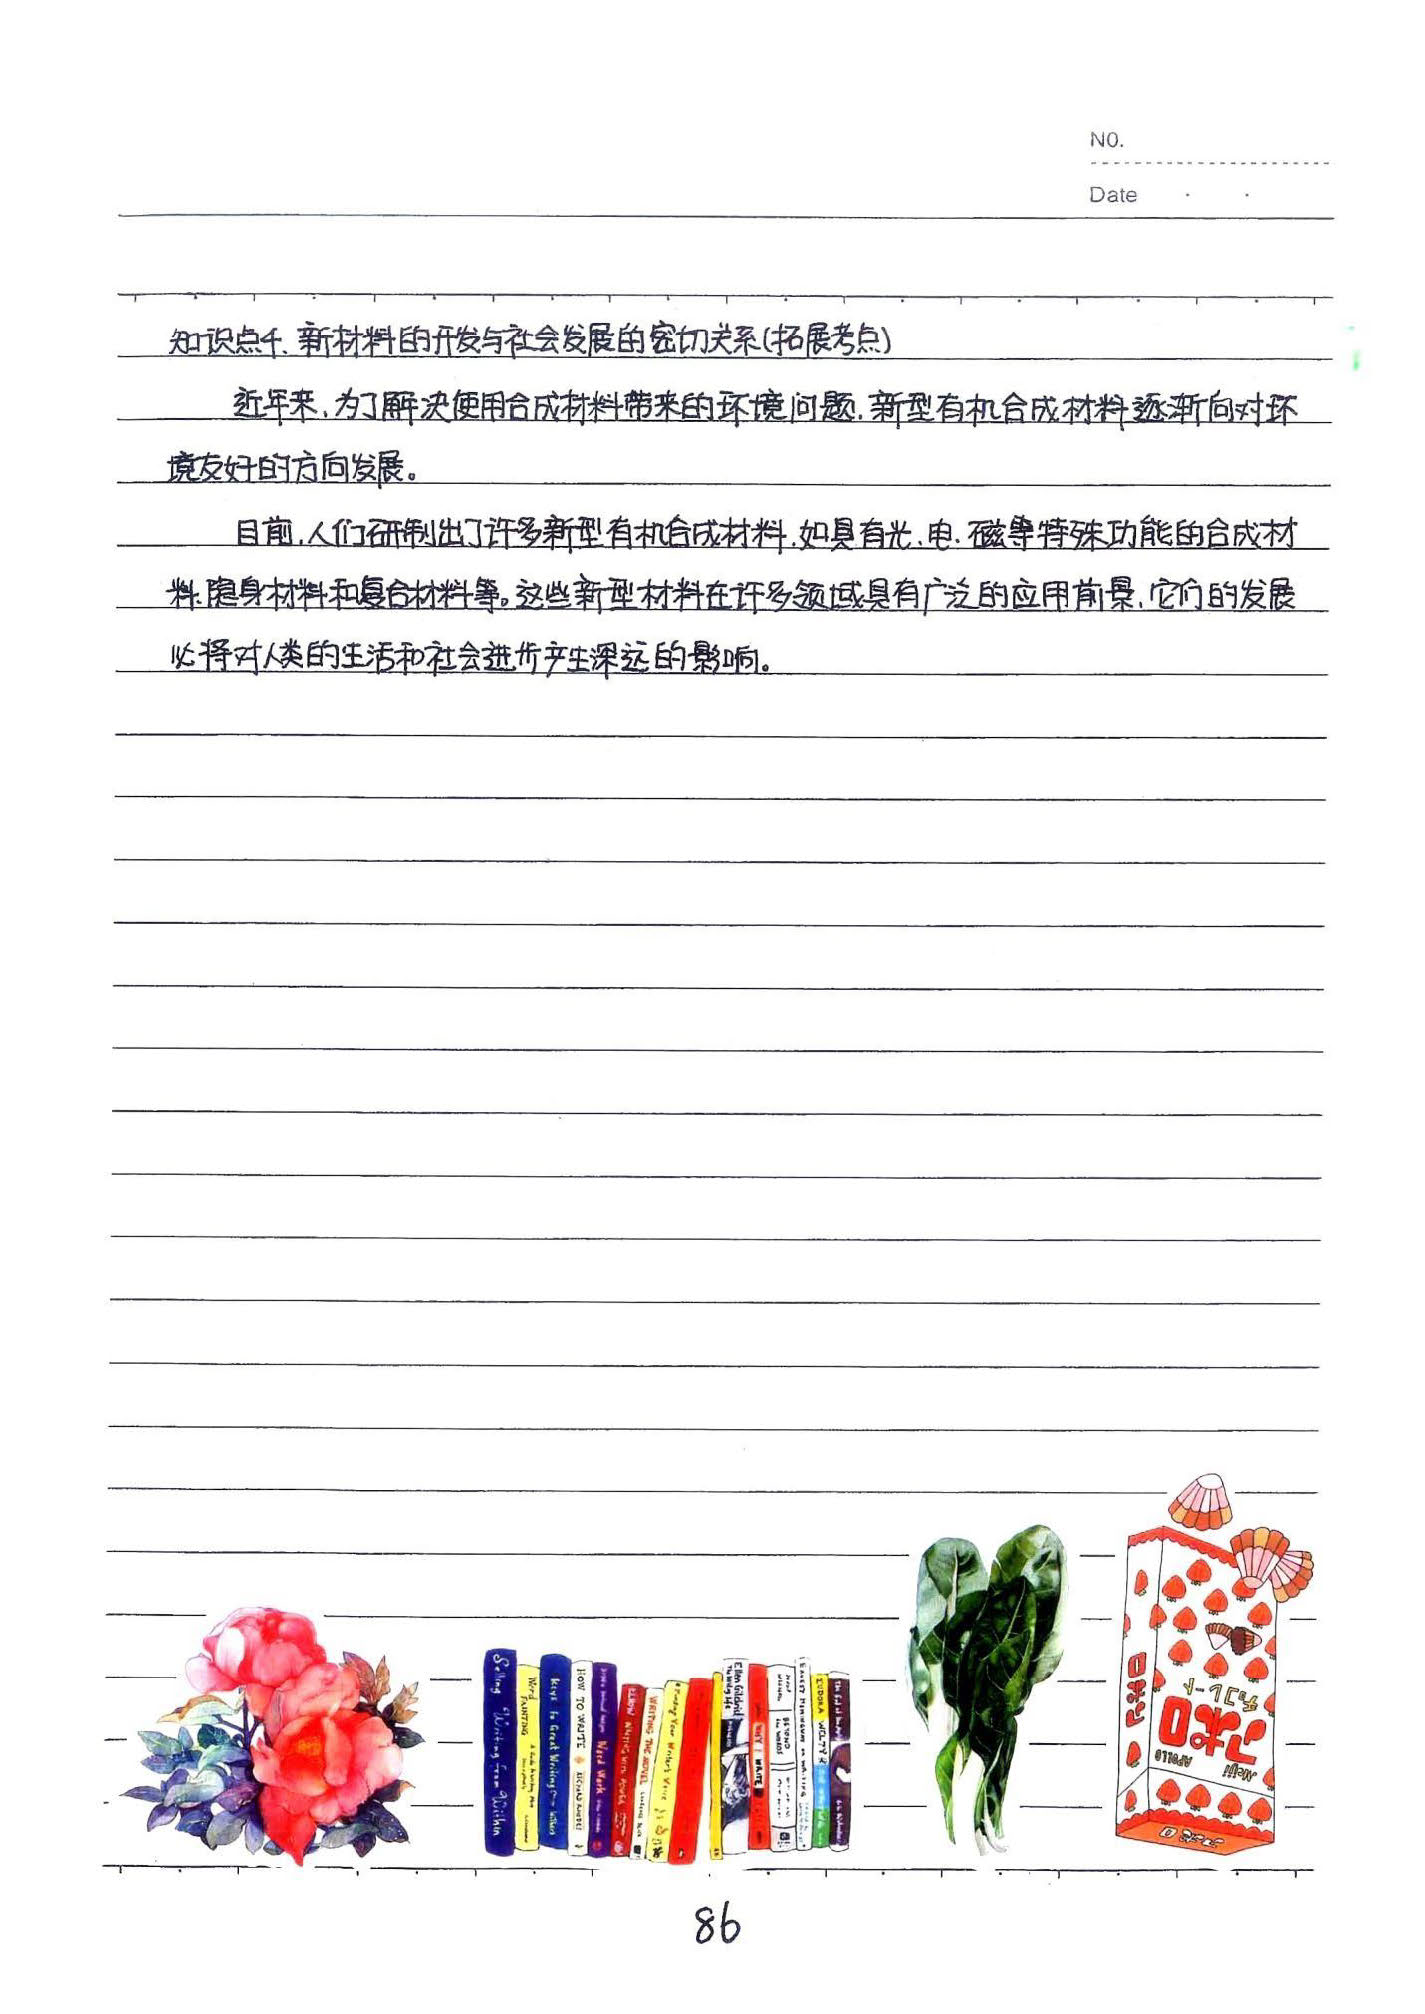 NO.
Date
知识点4、新材料的开发与社会发展的密切关系(拓展考点)
近年来,为了解决使用合成材料带来的环境问题,新型有机合成材料逐渐向对环
境友好的方向发展。
目前,人们研制出了许多新型有机合成材料,如具有光、电、磁等特殊功能的合成材
料、隐身材料和复合材料等。这些新型材料在许多领域具有广泛的应用前景,它们的发展
必将对人类的生活和社会进步产生深远的影响。
Selling Writing from Within
Word PAINTING
Keys To Great Writing
HOW TO WRITE
Word Work
WRITING THE NOVEL
Finding Your Writer's Voice
Ellen Gilchrist
WHY I WRITE
BEYOND
EUDORA WELTY
アポロ
チョコレート
APOLLO
Meiji
アポロ
86